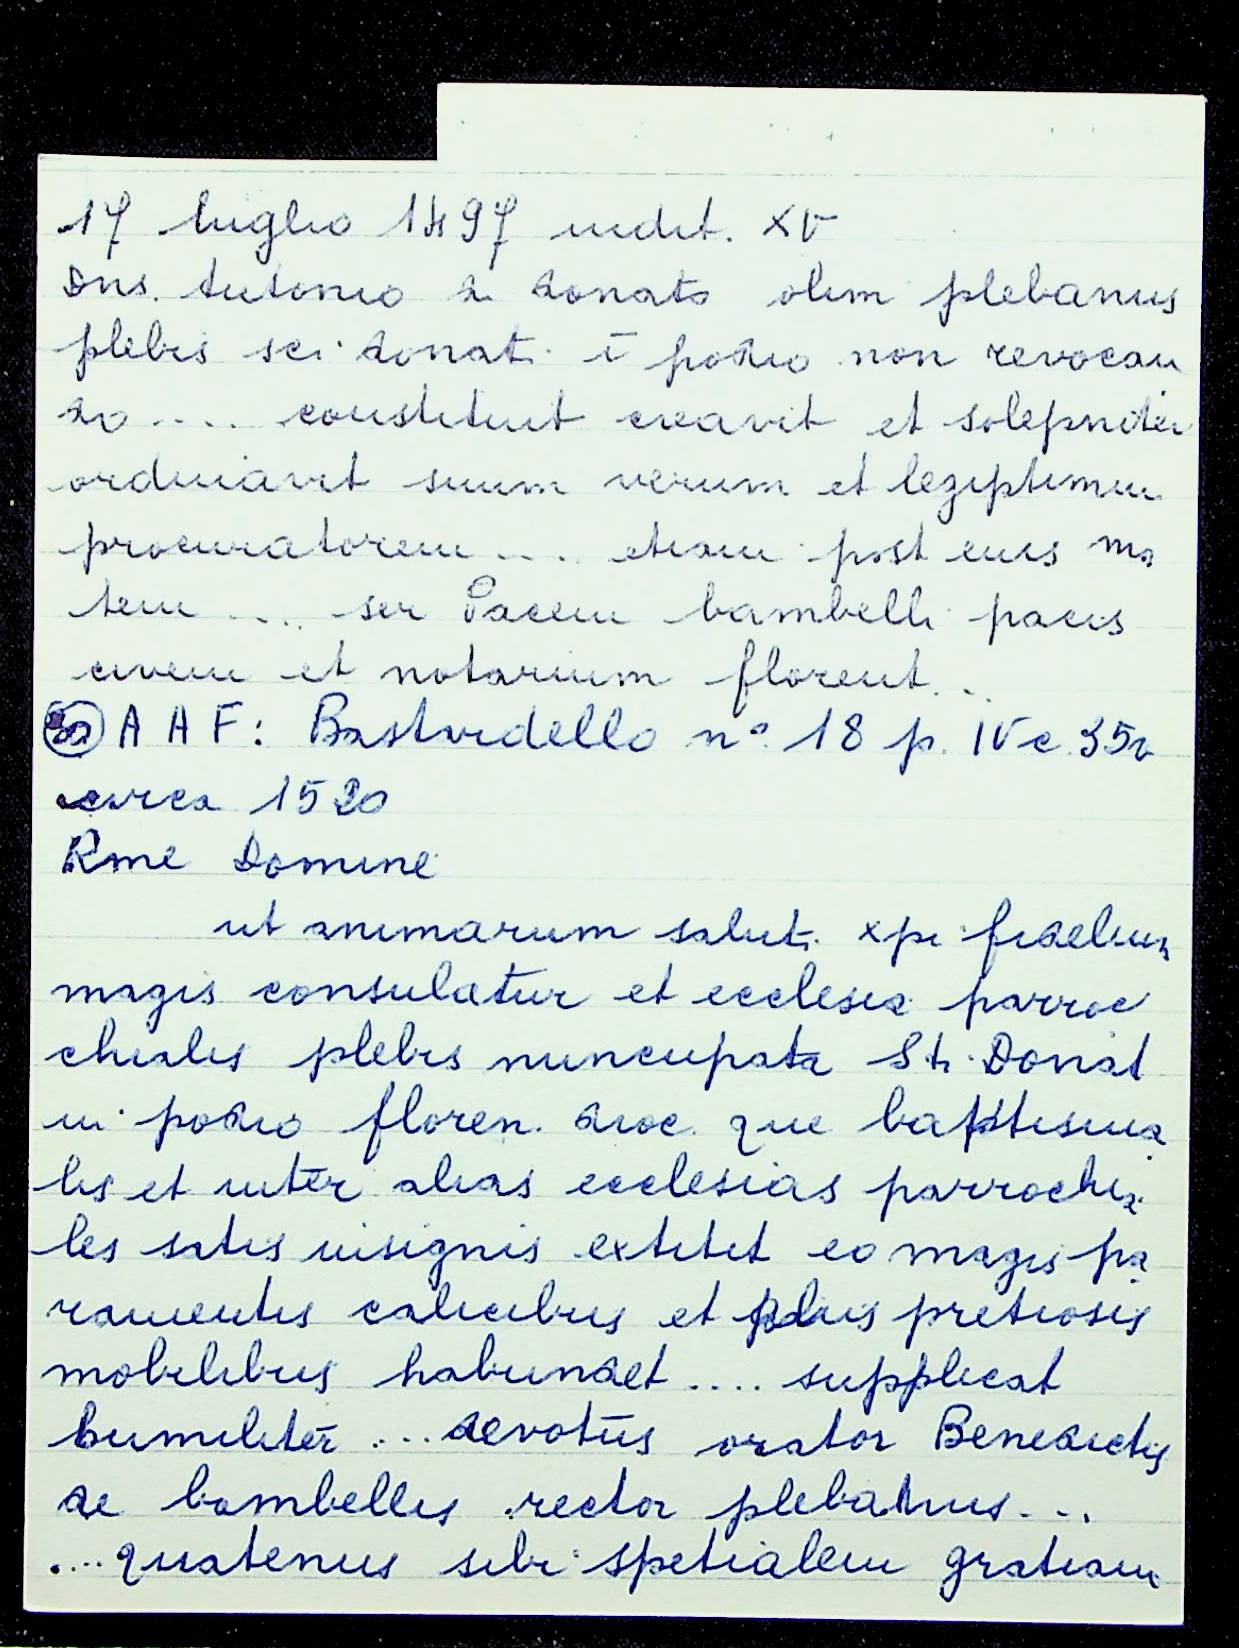 17 luglio 1497 indit. XV
Dns. Antonio de donato olim plebanus
plebis sci. donati ī podio non revocan
do .... constituit creavit et solepniter
ordinavit suum verum et legiptimum
procuratorem .... etiam post eius mo
tem .... ser Pacem bambelli pacis
civem et notarium florent...
A A F: Bastardello n° 18 p. IV c 35v
circa 1520
Rme Domine
ut animarum saluti xpi fidelium
magis consulatur et ecclesia parroc
chialis plebis nuncupata Sti Donat
in podio floren. dioc. que baptisma
lis et inter alias ecclesias parrochia
les satis insignis extitit eo magis pa
ramentis calicibus et aliis pretiosis
mobilibus habundet .... supplicat
humiliter ... devotus orator Benedictus
de bambellis rector plebanus ...
.... quatenus sibi spetialem gratiam